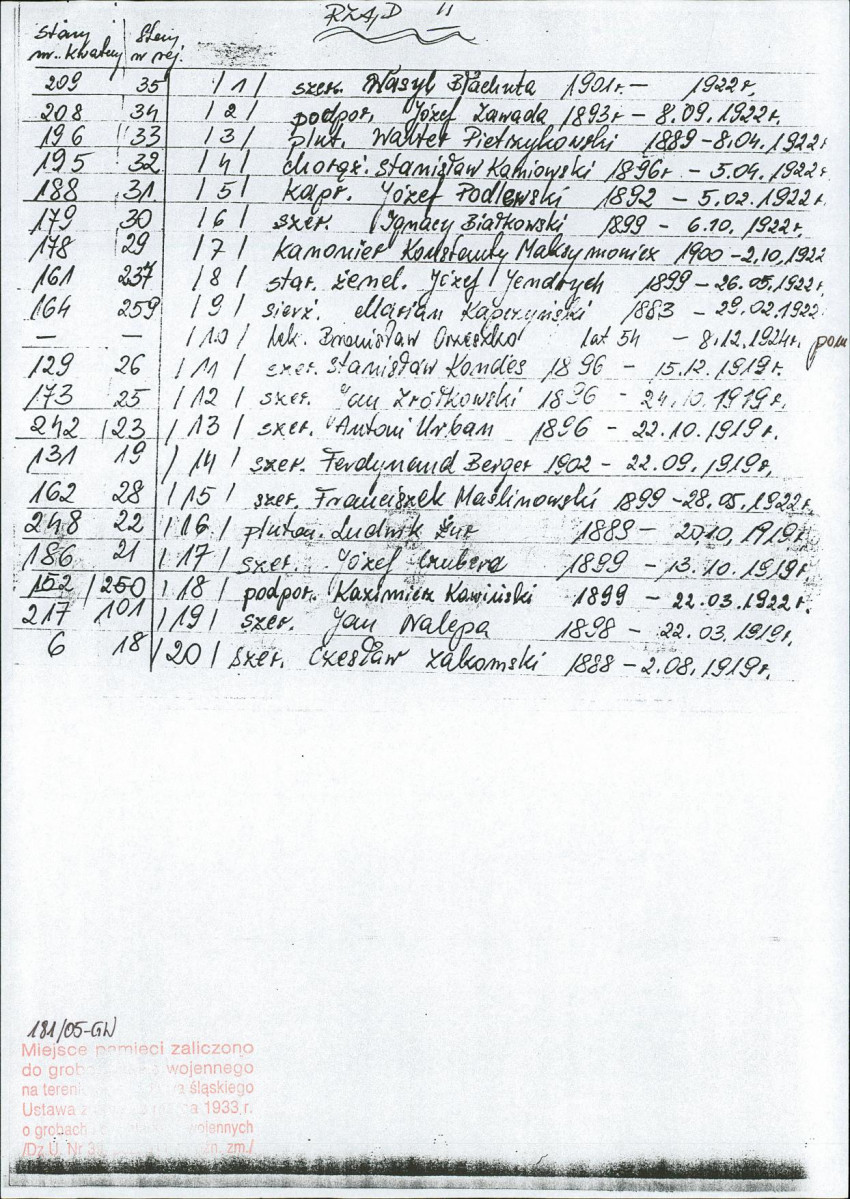 RZĄD II
Stary nr. kwatery Stary nr rej.
209 35 /1/ szer. Wasyl Błachuta 1901r. – 1922r.
208 34 /2/ podpor. Józef Zawada 1893r – 8.09.1922r.
196 33 /3/ plut. Walter Pietrzykowski 1889 – 8.04.1922r
195 32 /4/ chorąż. Stanisław Kaniowski 1896r – 5.04.1922r
188 31 /5/ kapr. Józef Podlewski 1892 – 5.02.1922r.
179 30 /6/ szer. Ignacy Białkowski 1899 – 6.10.1922r.
178 29 /7/ Kanonier Konstanty Maksymowicz 1900 – 2.10.1922
161 237 /8/ star. żewel. Józef Jendrych 1899 – 26.05.1922r.
164 259 /9/ sierż. Marian Kapczyński 1883 – 29.02.1922
– – /10/ lek. Bronisław Orzeszko lat 54 – 8.12.1924r.
129 26 /11/ szer. Stanisław Kondes 1896 – 15.12.1919r.
173 25 /12/ szer. Jan Źrółkowski 1896 – 24.10.1919r.
242 /23 /13/ szer. Antoni Urban 1896 – 22.10.1919r.
131 19 /14/ szer. Ferdynand Berger 1902 – 22.09.1919r.
162 28 /15/ szer. Franciszek Maślinowski 1899 – 28.05.1922r.
248 22 /16/ pluton. Ludwik Żur 1889 – 20.10.1919r
186 21 /17/ szer. Józef 1899 – 13.10.1919r.
152 /250 /18/ podpor. Kazimierz Kawiński 1899 – 22.03.1922r.
217 101 /19/ szer. Jan Nalepa 1898 – 22.03.1919r.
6 18 /20/ szer. Czesław Zakomski 1888 – 2.08.1919r.
181/05-GW
Miejsce pamięci zaliczono
do grob wojennego
na tereni śląskiego
Ustawa z 1933 r.
o grobach wojennych
/Dz.U. Nr zm./